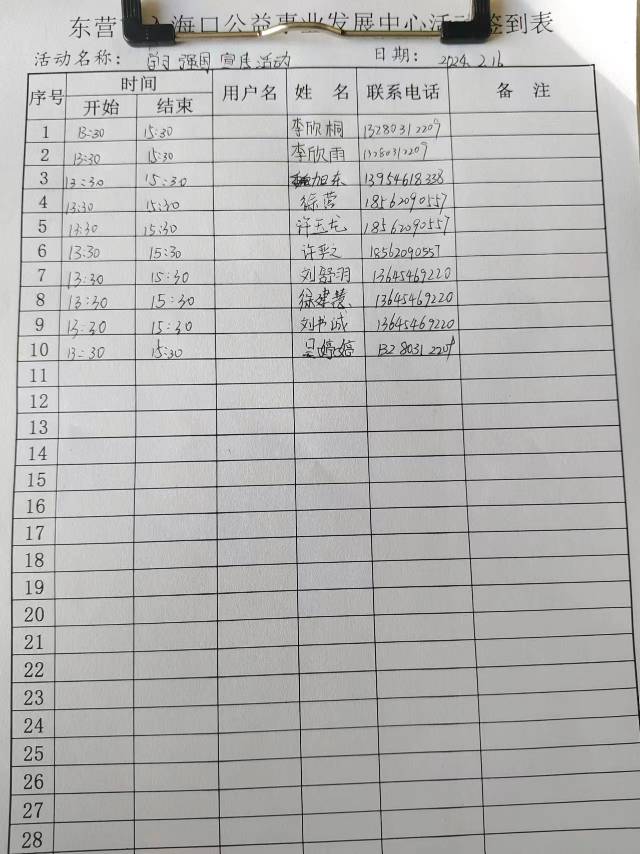 东营 入海口公益事业发展中心活动签到表
活动名称: 学习强国宣传活动 日期: 2024.2.16
序号 时间 用户名 姓名 联系电话 备注
开始 结束
1 13:30 15:30 李欣桐 13280312209
2 13:30 15:30 李欣雨 13280312209
3 13:30 15:30 旭东 13954618338
4 13:30 15:30 徐蕾 18562090557
5 13:30 15:30 许玉龙 18562090557
6 13:30 15:30 18562090557
7 13:30 15:30 刘舒羽 13645469220
8 13:30 15:30 徐建 13645469220
9 13:30 15:30 刘书诚 13645469220
10 13:30 15:30 吴婷婷 13280312209
11
12
13
14
15
16
17
18
19
20
21
22
23
24
25
26
27
28